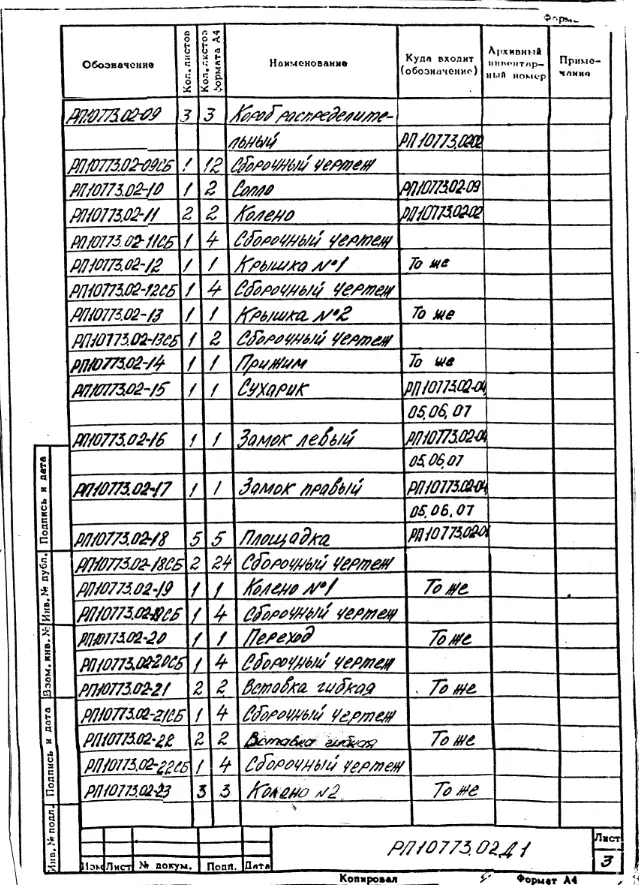 Обозначение Кол. листов Кол. листов формата А4 Наименование Куда входит (обозначение) Архивный инвентарный номер Примечания
РП10773.02-09 3 3 Короб распределите-
льный РП10773.02.02
РП10773.02-09СБ 1 12 Сборочный чертеж
РП10773.02-10 1 2 Сопло РП10773.02-09
РП10773.02-11 2 2 Колено РП10773.02-02
РП10773.02-11СБ 1 4 Сборочный чертеж
РП10773.02-12 1 1 Крышка №1 То же
РП10773.02-12СБ 1 4 Сборочный чертеж
РП10773.02-13 1 1 Крышка №2 То же
РП10773.02-13СБ 1 2 Сборочный чертеж
РП10773.02-14 1 1 Прижим То же
РП10773.02-15 1 1 Сухарик РП10773.02-04,
05,06,07
РП10773.02-16 1 1 Замок левый РП10773.02-04
05,06,07
РП10773.02-17 1 1 Замок правый РП10773.02-04
05,06,07
РП10773.02-18 5 5 Площадка
РП10773.02-18СБ 2 24 Сборочный чертеж
РП10773.02-19 1 1 Колено №1 То же
РП10773.02-19СБ 1 4 Сборочный чертеж
РП10773.02-20 1 1 Переход То же
РП10773.02-20СБ 1 4 Сборочный чертеж
РП10773.02-21 2 2 Вставка гибкая То же
РП10773.02-21СБ 1 4 Сборочный чертеж
РП10773.02-22 2 2 Вставка гибкая То же
РП10773.02-22СБ 1 4 Сборочный чертеж
РП10773.02-23 3 3 Колено №2 То же
Подпись и дата
Инв. № дубл.
Взам. инв. №
Подпись и дата
Инв. № подл.
РП10773.02Д1
Лист
3
Изм Лист № докум. Подп. Дата
Копировал Формат А4